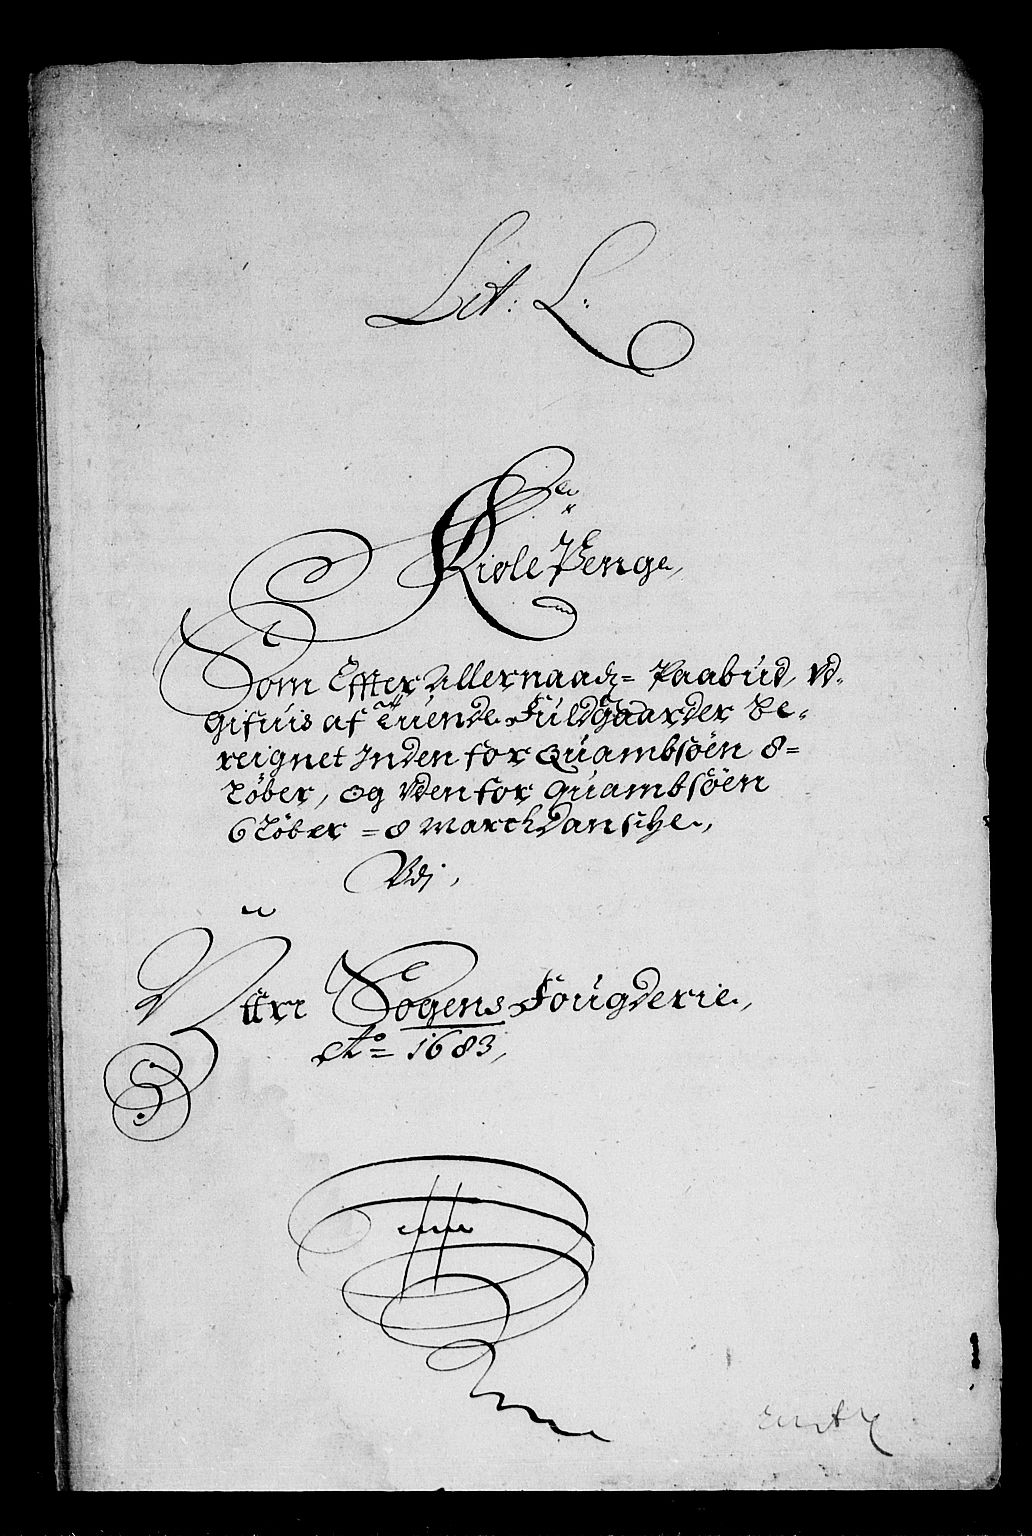 Lit: L:
Kiøle Penge,
Som Effter Allernaadg= Paabud, Vd-
gifuis af tuende Fuldgaarder Be-
reignet Inden for Quambsøen 8-
Töber, og Vden for Quambsöen
6 Töber = 8 March dansche,
Vdj,
Yttre Sogens Fougderie,
Ao= 1683,